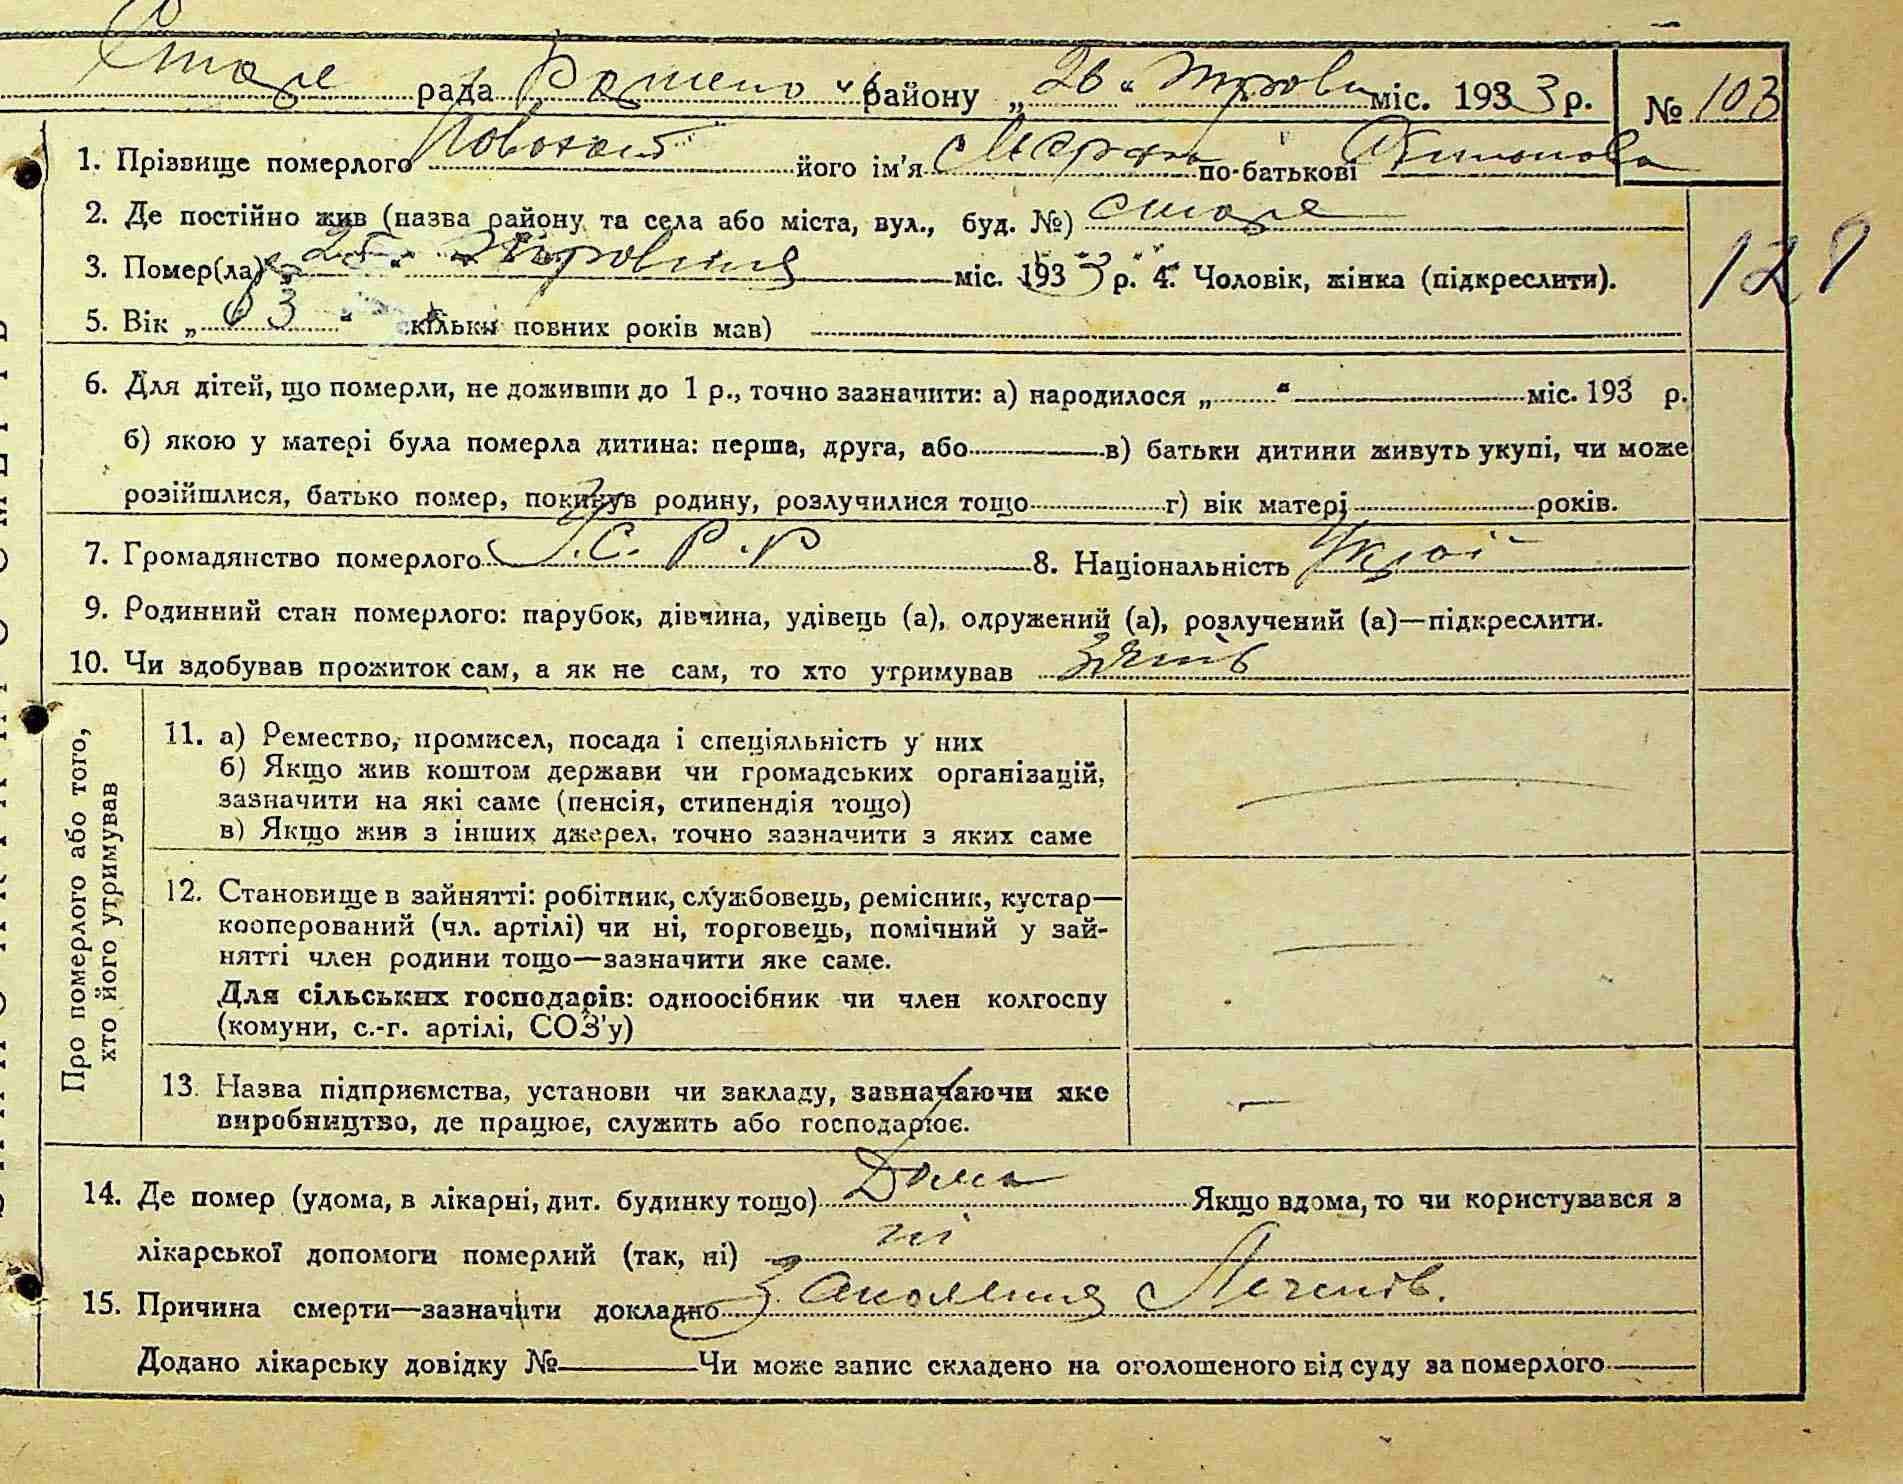 Старе рада район у „26“ Травня міс. 1933 р. № 103
1. Прізвище померлого його ім'я Марфа по-батькові
2. Де постійно жив (назва району та села або міста, вул., буд. №) Старе
3. Помер(ла) „25“ міс. 1933 р. 4. Чоловік, жінка (підкреслити).
128
5. Вік „63“ скільки повних років мав)
6. Для дітей, що померли, не доживши до 1 р., точно зазначити: а) народилося „ “ міс. 193 р.
б) якою у матері була померла дитина: перша, друга, або в) батьки дитини живуть укупі, чи може
розійшлися, батько помер, покинув родину, розлучилися тощо г) вік матері років.
7. Громадянство померлого У.С.Р.Р 8. Національність Украї
9. Родинний стан померлого: парубок, дівчина, удівець (а), одружений (а), розлучений (а)—підкреслити.
10. Чи здобував прожиток сам, а як не сам, то хто утримував зять
Про померлого або того,
хто його утримував
11. а) Ремество, промисел, посада і спеціяльність у них
б) Якщо жив коштом держави чи громадських організацій,
зазначити на які саме (пенсія, стипендія тощо)
в) Якщо жив з інших джерел, точно зазначити з яких саме
12. Становище в зайнятті: робітник, службовець, ремісник, кустар—
кооперований (чл. артілі) чи ні, торговець, помічний у зай-
нятті член родини тощо—зазначити яке саме.
Для сільських господарів: одноосібник чи член колгоспу
(комуни, с.-г. артілі, СОЗ'у)
13. Назва підприємства, установи чи закладу, зазначаючи яке
виробництво, де працює, служить або господарює.
14. Де помер (удома, в лікарні, дит. будинку тощо) Дома Якщо вдома, то чи користувався з
лікарської допомоги померлий (так, ні) ні
15. Причина смерти—зазначити докладно Запалення Легенів.
Додано лікарську довідку № Чи може запис складено на оголошеного від суду за померлого